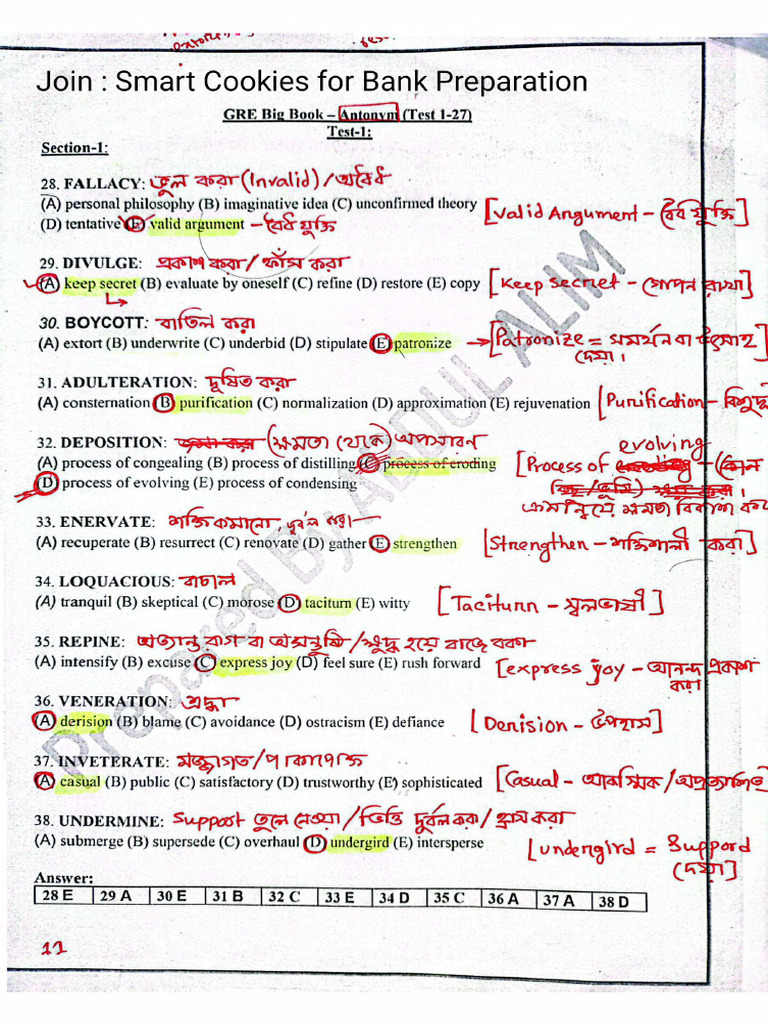 Join : Smart Cookies for Bank Preparation
GRE Big Book – Antonym (Test 1-27)
Test-1:
Section-1:
28. FALLACY: ভুল করা (Invalid) / অবৈধ
(A) personal philosophy (B) imaginative idea (C) unconfirmed theory
(D) tentative (E) valid argument – বৈধ যুক্তি [Valid Argument – বৈধ যুক্তি]
29. DIVULGE: প্রকাশ করা / ফাঁস করা
(A) keep secret (B) evaluate by oneself (C) refine (D) restore (E) copy [Keep secret – গোপন রাখা]
30. BOYCOTT: বাতিল করা
(A) extort (B) underwrite (C) underbid (D) stipulate (E) patronize → [Patronize = সমর্থন বা উৎসাহ
দেয়া।
31. ADULTERATION: দূষিত করা
(A) consternation (B) purification (C) normalization (D) approximation (E) rejuvenation [Purification – বিশুদ্ধ
32. DEPOSITION: (ক্ষমতা থেকে) অপসারণ
(A) process of congealing (B) process of distilling (C) process of eroding [Process of evolving – (কোন
(D) process of evolving (E) process of condensing
ক্রমান্বয়ে ক্ষমতা বিকাশ
33. ENERVATE: শক্তি কমানো, দুর্বল করা
(A) recuperate (B) resurrect (C) renovate (D) gather (E) strengthen [Strengthen – শক্তিশালী করা]
34. LOQUACIOUS: বাচাল
(A) tranquil (B) skeptical (C) morose (D) taciturn (E) witty [Taciturn – স্বল্পভাষী]
35. REPINE: অত্যান্ত রাগ বা অসন্তুষ্টি / ক্ষুদ্ধ হয়ে বাজে বকা
(A) intensify (B) excuse (C) express joy (D) feel sure (E) rush forward [express joy – আনন্দ প্রকাশ
করা]
36. VENERATION: শ্রদ্ধা
(A) derision (B) blame (C) avoidance (D) ostracism (E) defiance [Derision – উপহাস]
37. INVETERATE: মজ্জাগত /
(A) casual (B) public (C) satisfactory (D) trustworthy (E) sophisticated [Casual – আকস্মিক / অপ্রত্যাশিত]
38. UNDERMINE: Support তুলে নেওয়া / ভিত্তি দুর্বল করা / হ্রাস করা
(A) submerge (B) supersede (C) overhaul (D) undergird (E) intersperse [undergird = Support
(দেয়া)]
Answer:
28 E 29 A 30 E 31 B 32 C 33 E 34 D 35 C 36 A 37 A 38 D
11
Prepared By ABDUL ALIM